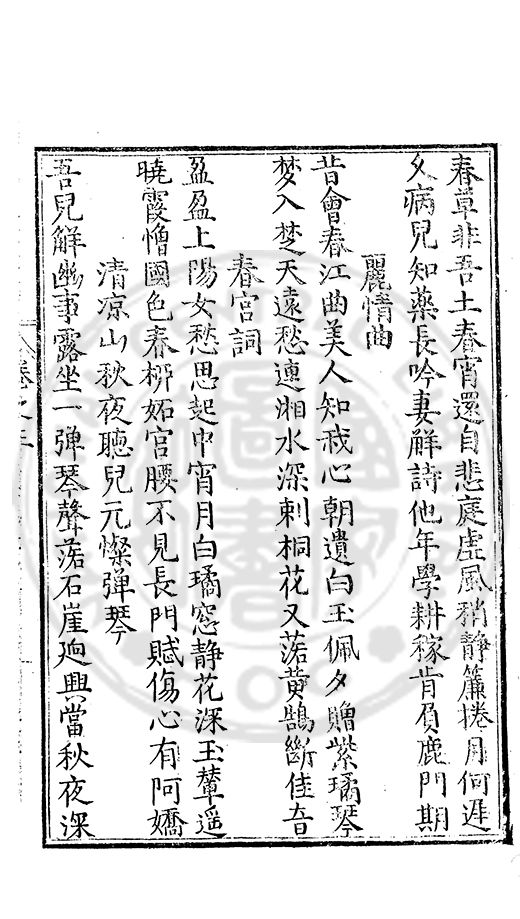 春草非吾土春宵還自悲庭虛風稍靜簾捲月何遲
久病兒知藥長吟妻解詩他年學耕稼肯負鹿門期
麗情曲
昔會春江曲美人知我心朝遺白玉佩夕贈紫璚琴
梦入楚天遠愁連湘水深刺桐花又落黄鵠斷佳音
春宮詞
盈盈上陽女愁思起中宵月白璚窓静花深玉輦遥
曉霞憎國色春柳妬宮腰不見長門賦傷心有阿嬌
清凉山秋夜聽兒元燦弹琴
吾兒解幽事露坐一弹琴聲落石崖迥興當秋夜深